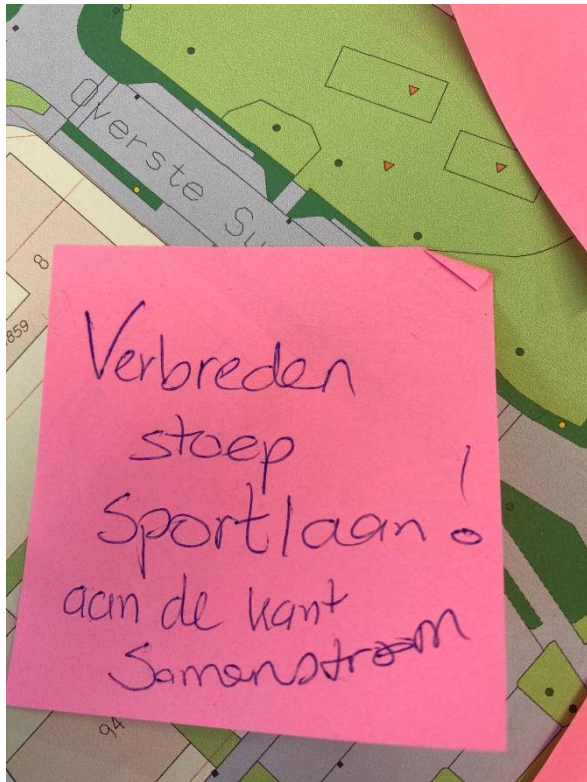 Overste Su
8
859
Verbreden
stoep
Sportlaan!
aan de kant
Samenstroom
94